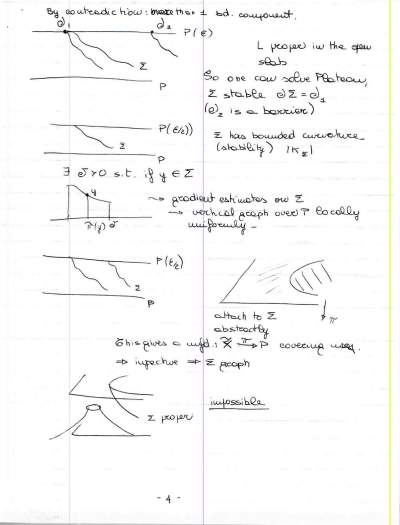 By contradiction: more than 1 bd. component.
∂1 ∂2 P(ε)
L proper in the open
slab
Σ
P
So one can solve Plateau,
Σ stable ∂Σ = ∂1
(∂2 is a barrier)
P(ε/2)
Σ has bounded curvature
(stability) |K_Σ|
Σ
P
∃ δ>0 s.t. if y ∈ Σ
y
⇝ gradient estimates on Σ
→ vertical graph over P locally
uniformly -
π(y) δ
P(ε/2)
Σ
P
attach to Σ
abstractly
π
This gives a mfd.: X̃ →π P covering map.
⇒ injective ⇒ Σ graph
Σ proper
impossible
- 4 -